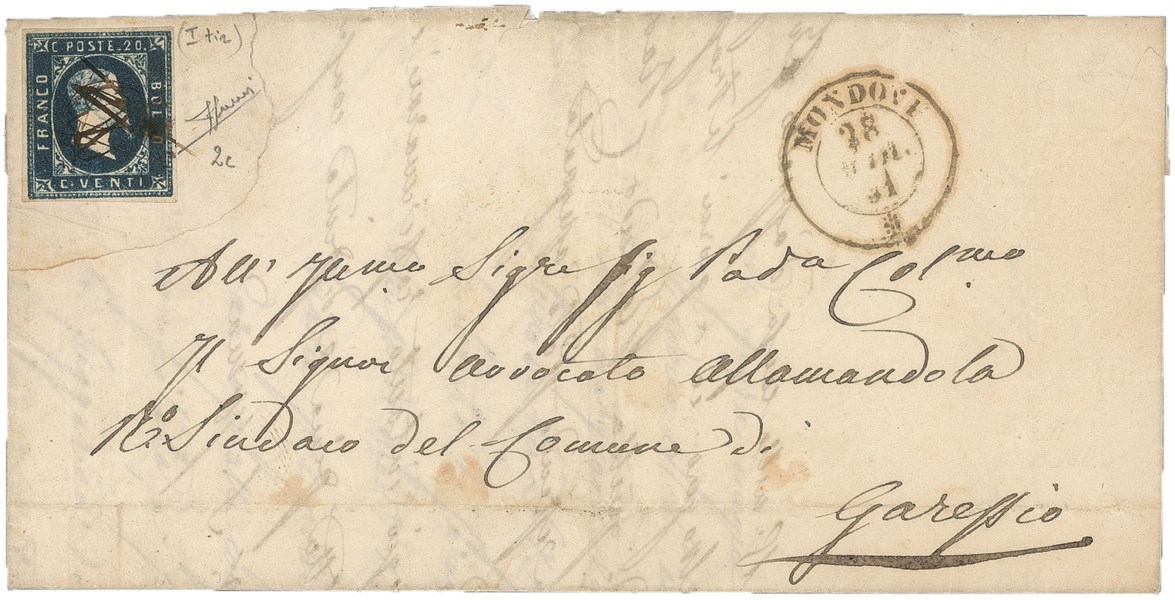 C. POSTE. 20.
FRANCO
BOLLO
C. VENTI
(I tir)
2c
MONDOVI
28
51
All' Illmo Sigre Sig Pad^a Col^mo
Il Signor Avvocato Allamandola
R^o. Sindaco del Comune di
Garessio